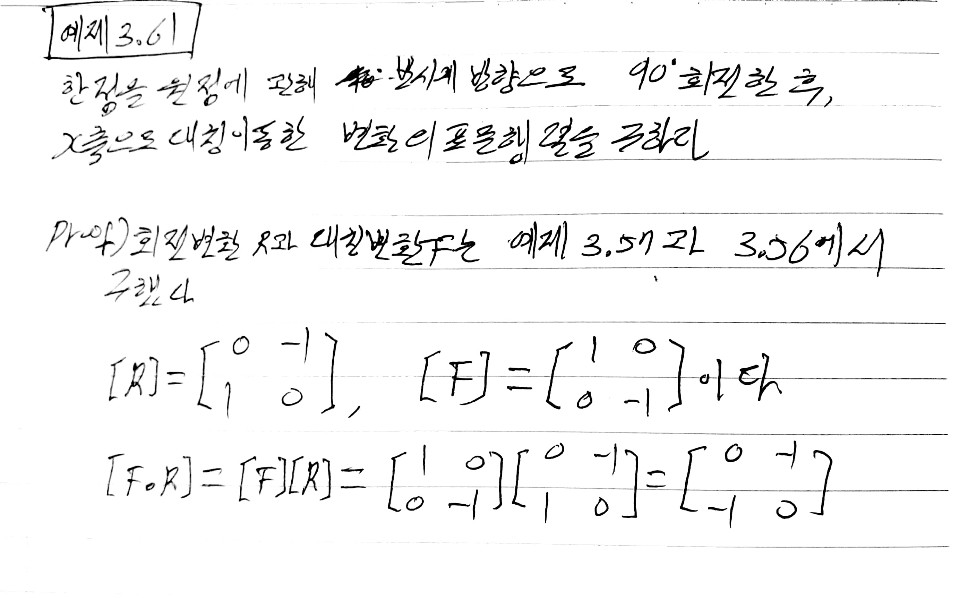 예제 3.61
한 점을 원점에 관해 반시계 방향으로 90° 회전한 후,
x축으로 대칭이동한 변환의 표준행렬을 구하라
Proof) 회전변환 R과 대칭변환 F는 예제 3.57과 3.56에서
구했다
[R] = [0 -1; 1 0], [F] = [1 0; 0 -1]이다
[F∘R] = [F][R] = [1 0; 0 -1][0 -1; 1 0] = [0 -1; -1 0]